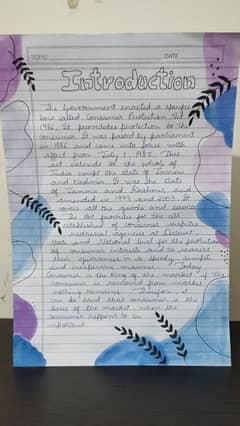 TOPIC DATE
Introduction
The Government enacted a specific
law called Consumer Protection Act
1986. It provides protection to the
consumer. It was passed by parliament
in 1986 and came into force with
affect from July 1, 1987. This
act extends to the whole of
India except the state of Jammu
and Kashmir. It was the state
of Jammu and Kashmir and
amended in 1993 and 2003. It
covers all the goods and services
The Act provides for the
established of consumer disputes
redressal agencies at District
state and National level for the protection
of consumer interests and to redress
their grievances in a speedy, simple
and inexpensive manner. Today
Consumer is the King of the market if the
consumer is removed from market
nothing remains. Therefore, it
can be said that consumer is the
basis of the market, when the
consumer happens to be
important